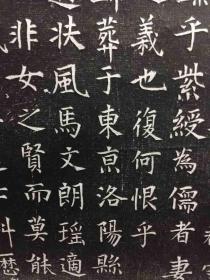 乎紫綬為儒者妻
義也復何恨乎
葬于東亰洛陽縣
扶風馬文朗瑤適
非女之賢而莫能